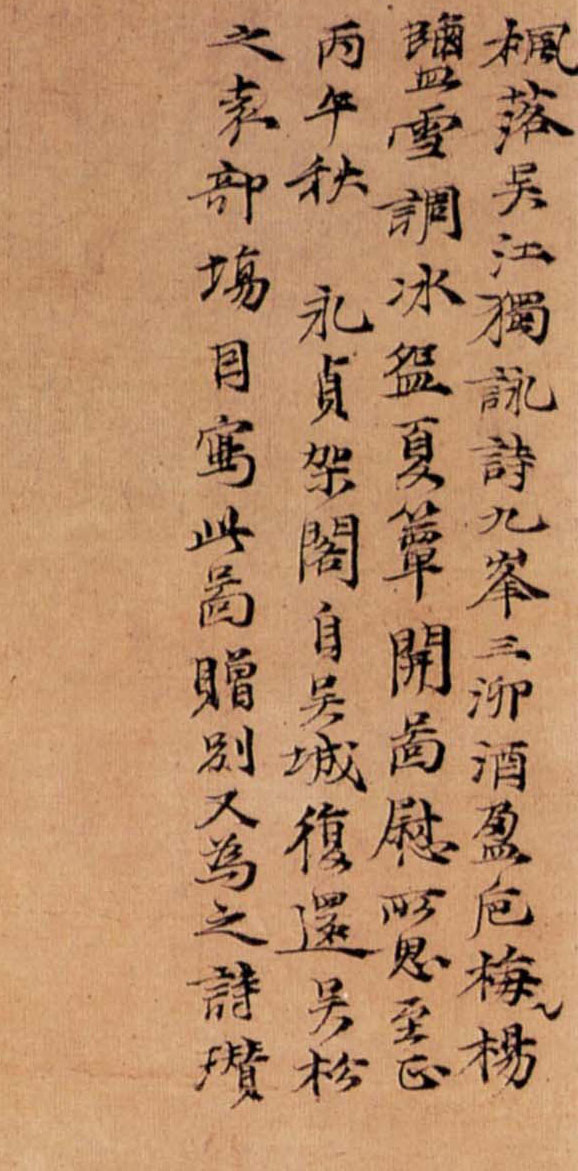 楓落吳江獨詠詩九峯三泖酒盈巵梅楊
鹽雪調冰盌夏簟開啚慰所思至正
丙午秋 永貞架閣自吳城復還吳松
之袁部塲因寫此啚贈別又為之詩瓚